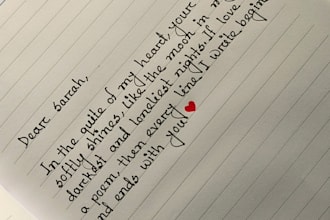 Dear Sarah,
In the quite of my heard, your
softly shines, like the moon in m
darkest and loneliest nights. If love
a poem, then every line I write begin
nd ends with you